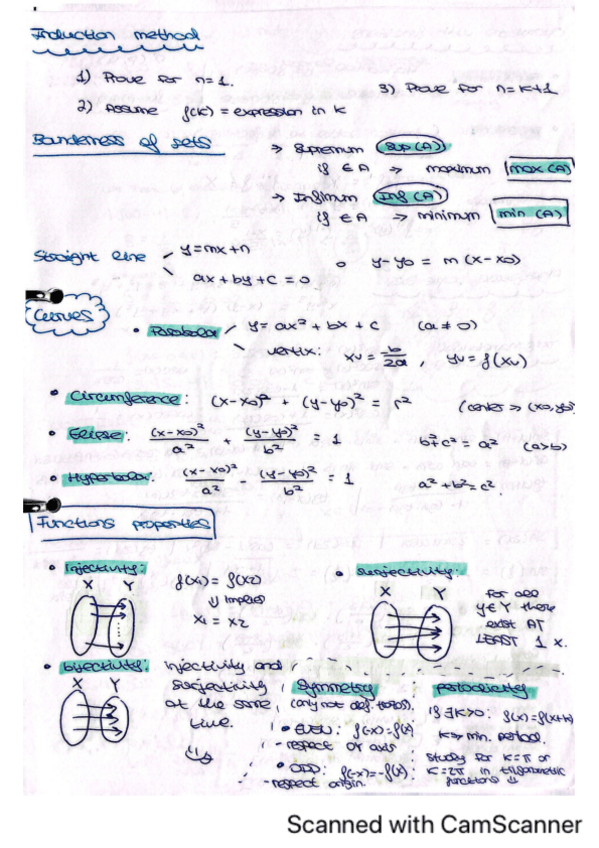 Induction method
1) Prove for n=1.
3) Prove for n=k+1
2) Assume f(k) = expression in k
Boundeness of sets
→ Supremum Sup(A)
if ∈ A → maximum max(A)
→ Infimum Inf(A)
if ∈ A → minimum min (A)
Straight line
y=mx+n
y-y0 = m (x-x0)
ax+by+c=0
Curves
• Parabola
y= ax² + bx + c (a≠0)
vertix: xv = b/2a, yv = f(xv)
• Circumference: (x-x0)² + (y-y0)² = r² (center → (x0,y0)
• Elipse: (x-x0)²/a² + (y-y0)²/b² = 1 b²+c² = a² (a>b)
• Hyperbola: (x-x0)²/a² - (y-y0)²/b² = 1 a²+b²=c².
Functions properties
• Injectivity:
X Y
f(x1) = f(x2)
⇓ implies
x1 = x2
• Surjectivity:
X Y
For all
y∈Y there
exist AT
LEAST 1 x.
• Bijectivity:
X Y
Injectivity and
surjectivity
at the same
time.
Symmetry
• EVEN: f(-x)=f(x)
- respect OY axis
• ODD: f(-x)=-f(x).
- respect origin.
Periodicity
if ∃k>0: f(x)=f(x+k)
k→ min. period.
study for k=π or
k=2π in trigonometric
functions
Scanned with CamScanner